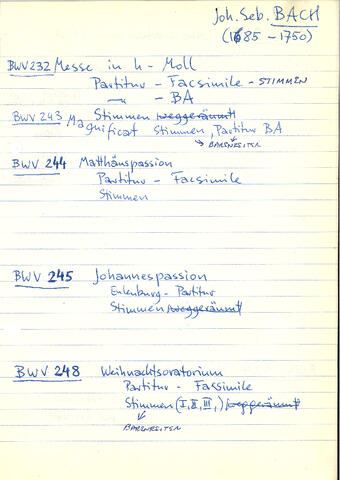 Joh. Seb. BACH
(1685 - 1750)
BWV 232 Messe in h - Moll
Partitur - Facsimile - STIMMEN
—〃— - BA
Stimmen weggeräumt
BWV 243 Magnificat Stimmen, Partitur BA
→ BARWEITEN
BWV 244 Matthäuspassion
Partitur - Facsimile
Stimmen
BWV 245 Johannespassion
Eulenburg - Partitur
Stimmen weggeräumt
BWV 248 Weihnachtsoratorium
Partitur - Facsimile
Stimmen (I, II, III,) weggeräumt
BARWEITEN